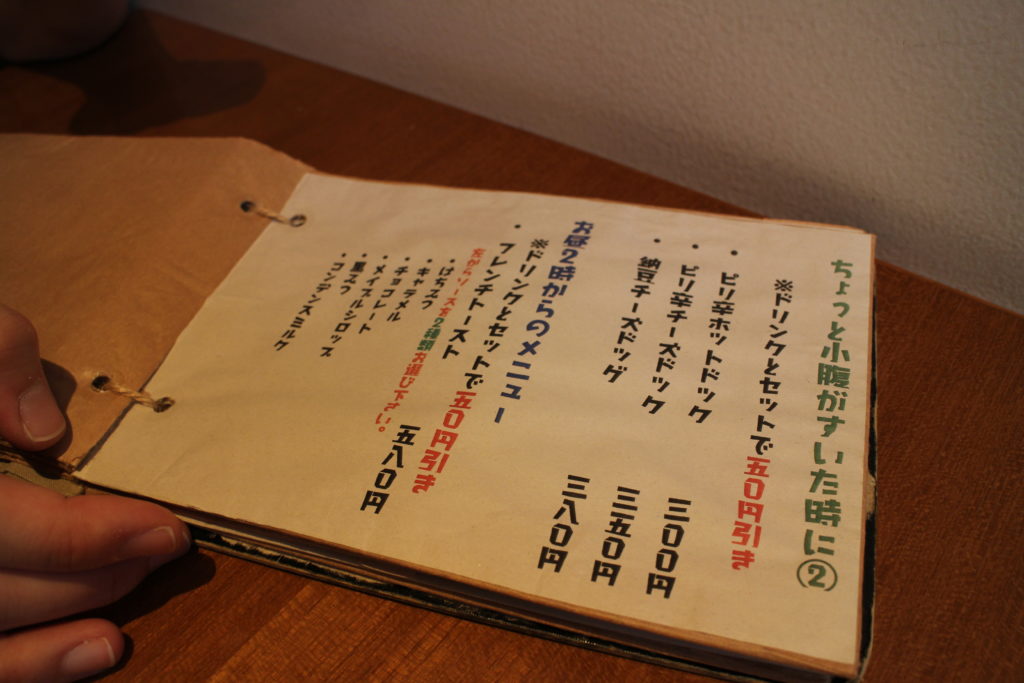 ちょっと小腹がすいた時に②
※ドリンクとセットで五〇円引き
・ピリ辛ホットドック 三〇〇円
・ピリ辛チーズドック 三五〇円
・納豆チーズドッグ 三八〇円
お昼2時からのメニュー
※ドリンクとセットで五〇円引き
・フレンチトースト 五八〇円
左からソースを2種類お選び下さい。
・はちミツ
・キャラメル
・チョコレート
・メイプルシロップ
・黒ミツ
・コンデンスミルク